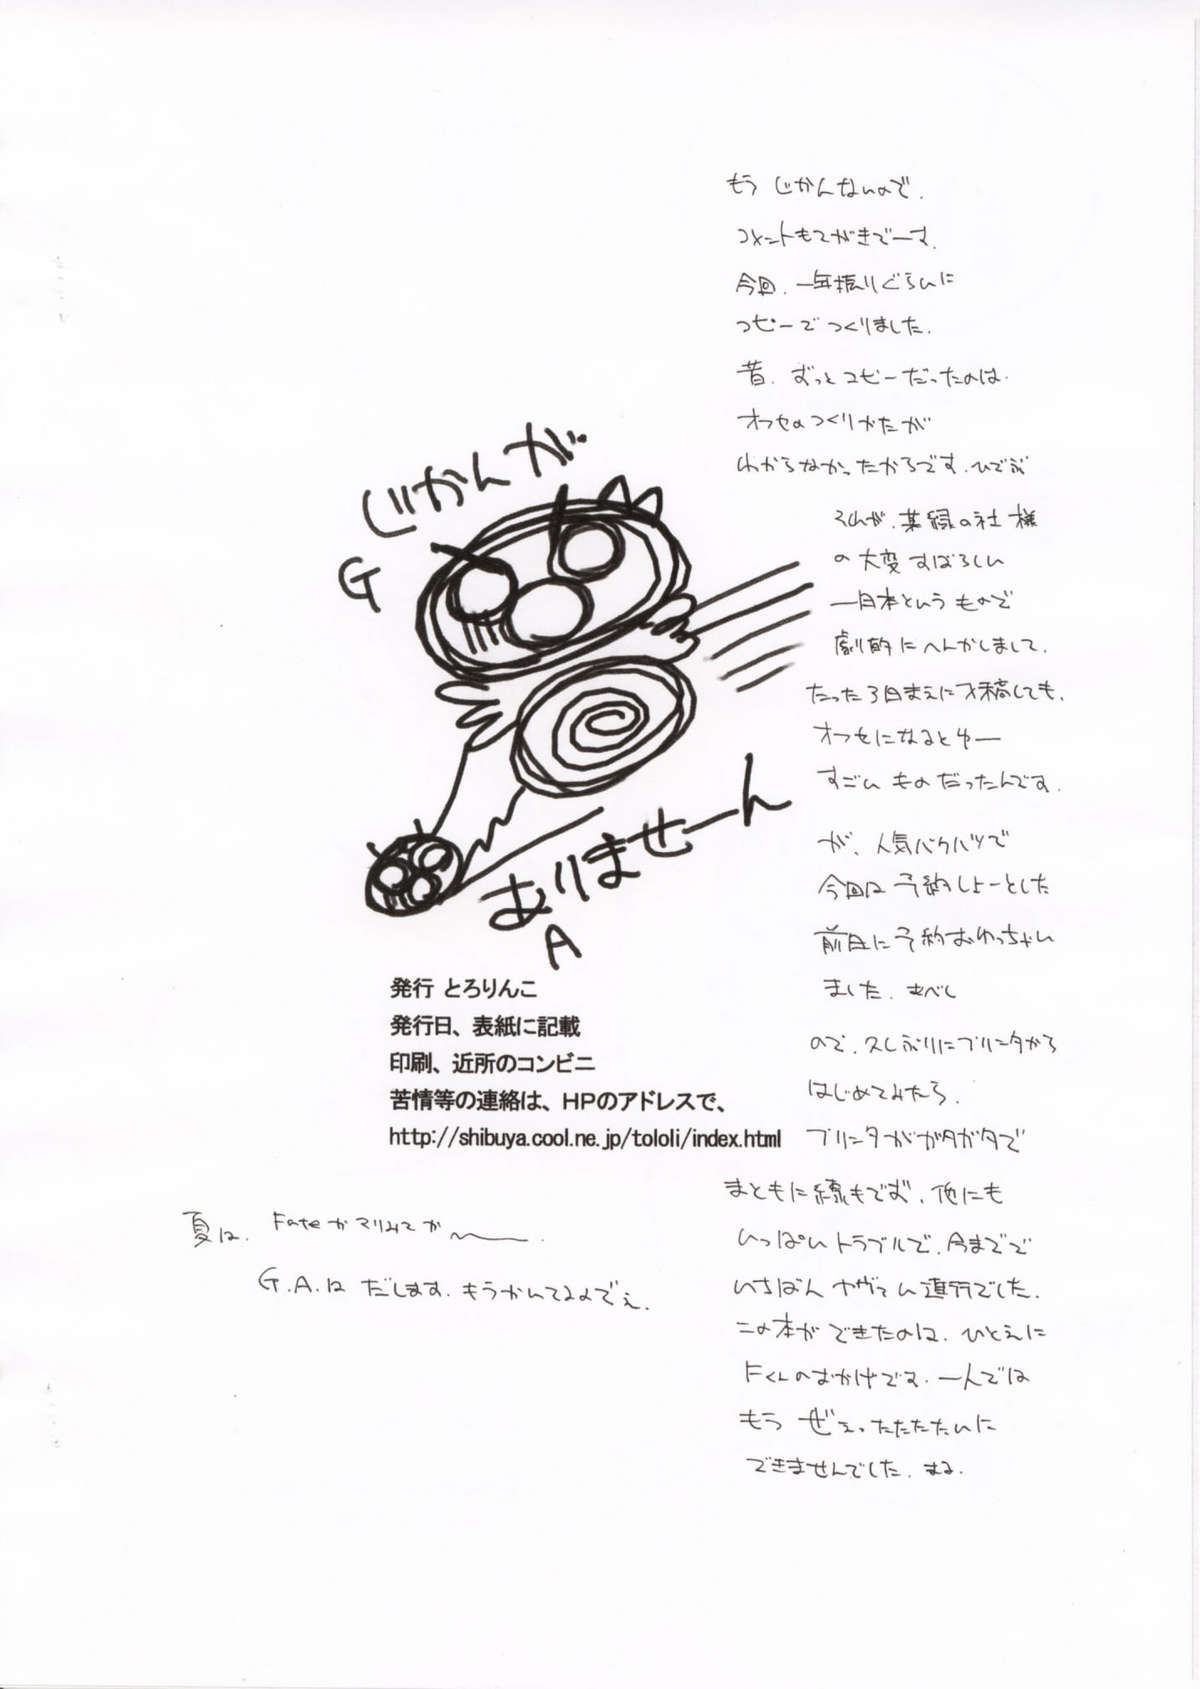 もう じかんないので.
コメントもてがきでーす.
今回. 一年振りぐらいに
コピーで つくりました.
昔. ずっと コピーだったのは.
オフセの つくりかたが
わからなかったからです. ひでぶ
それが. 某緑の社様
の 大変 すばらしい
一日本という もので
劇的に へんかしまして.
たった3日まえに入稿しても.
オフセになるとゆー
すごい ものだったんです.
が、人気バクハツで
今回は 予約しよーとした
前日に 予約おわっちゃい
ました. まべし
ので. 久しぶりにプリンタから
はじめてみたら.
プリンタがガタガタで
まともに線もでず. 他にも
いっぱい トラブルで. 今までで
いちばん ヤヴァい進行でした.
この本が できたのは. ひとえに
Fくんのおかげです. 一人では
もう ぜぇったたたたいに
できませんでした. まる.
じかんが
G
ありませーん
A
発行 とろりんこ
発行日、表紙に記載
印刷、近所のコンビニ
苦情等の連絡は、HPのアドレスで、
http://shibuya.cool.ne.jp/tololi/index.html
夏は. Fateか マリみてか〜.
G.A.は だします. もうかいてるのでぇ.